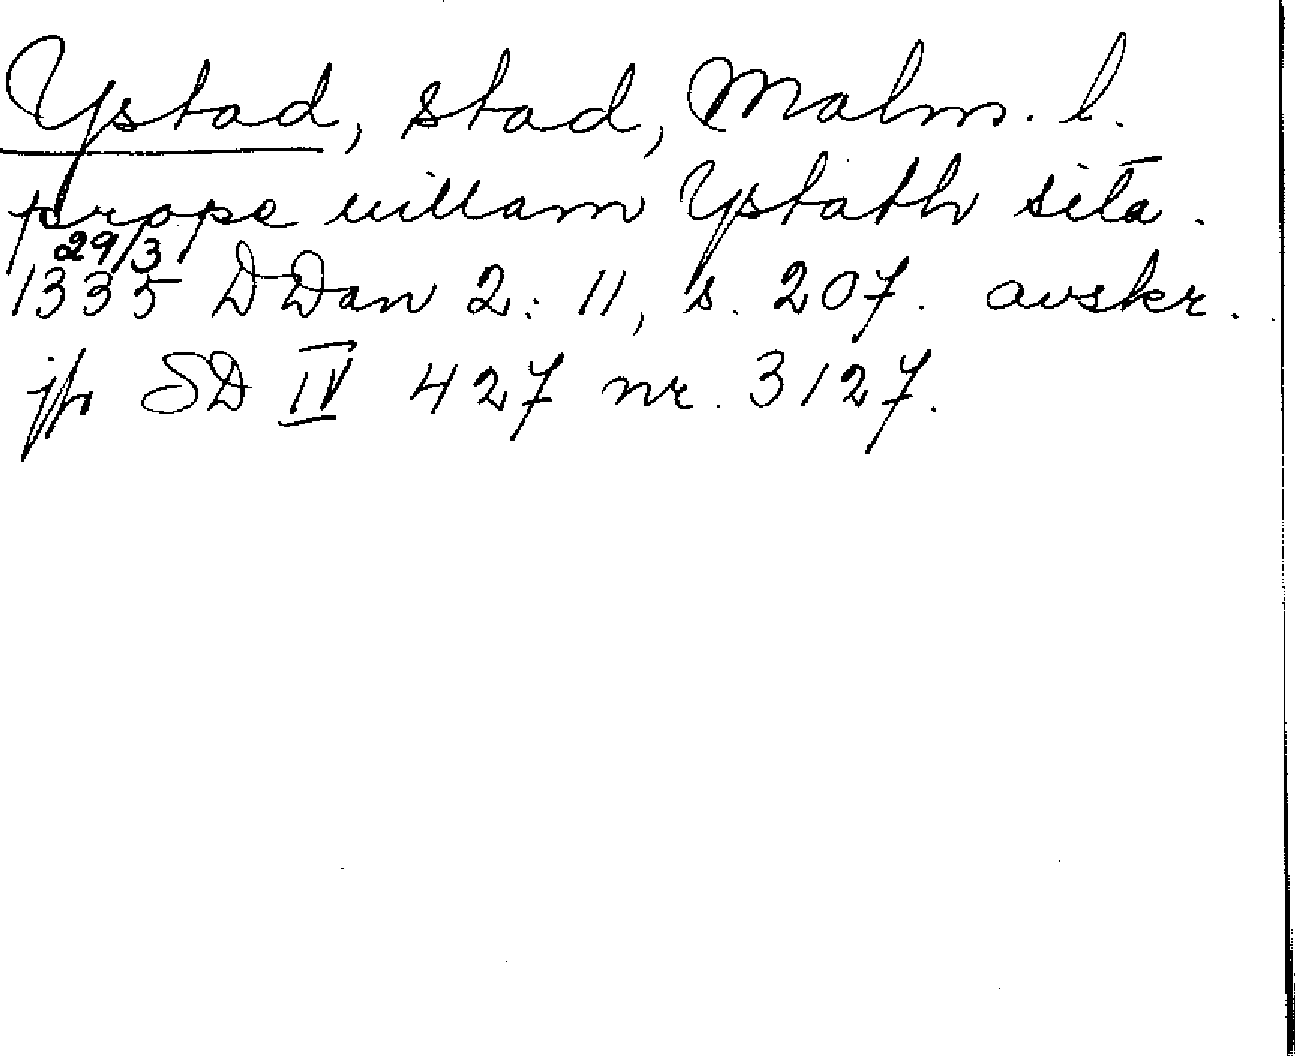 Ystad, stad, Malm. l.
prope uillam Ystath sita.
29/3
1335 DDan 2: 11, s. 207. avskr.
jfr SD IV 427 nr. 3127.